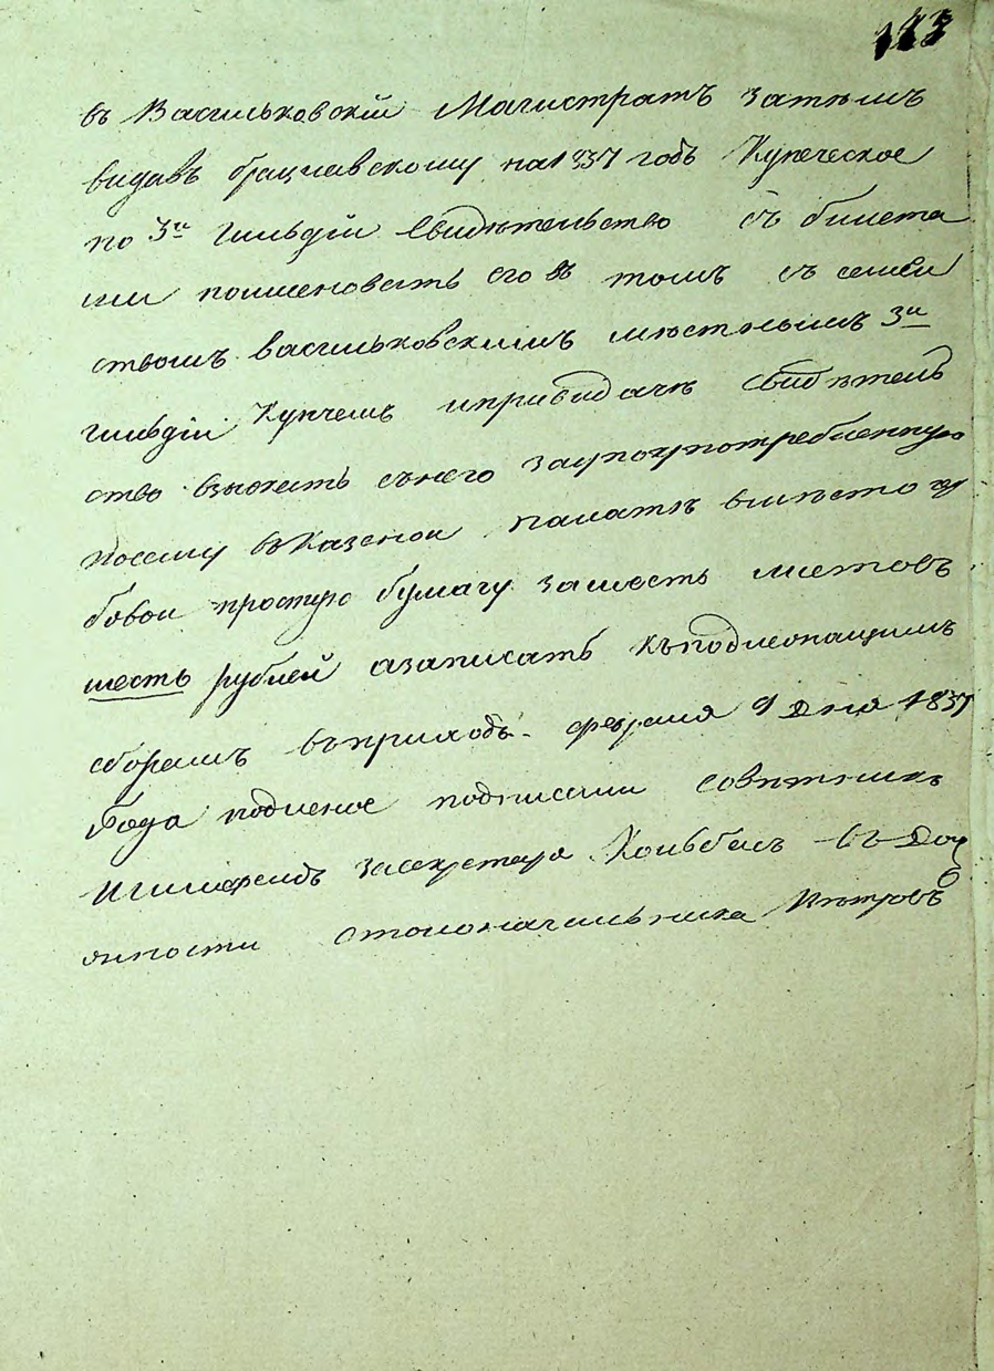 въ Васильковскій Магистратъ затѣмъ
видавъ брацлавскому на 1837 годъ Купеческое
по 3й Гильдіи Свидѣтельство съ билета
ми поименовать его въ томъ съ семей
ствомъ васильковскимъ мѣстнымъ 3й
гильдіи Купчемъ и привидачѣ свидѣтель
ство взыскать снего заупоупотребленную
посему вКазеной палатѣ вмѣсто гер
бовои простую бумагу зашесть листовъ
шесть рублей азаписать кьподлежащимъ
сборамъ въприходъ. февраля 9 дня 1837
Года подленое подписали Совѣтникъ
засекретаря въ Дол
жности столоначальника Пѣтровъ